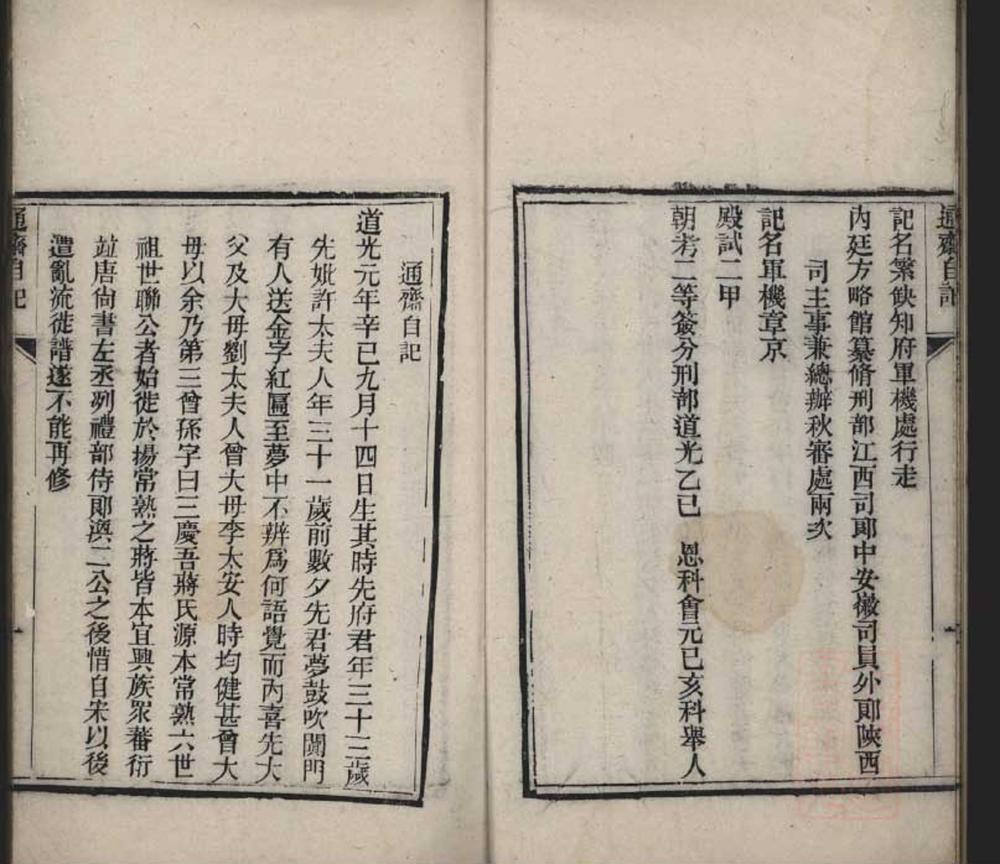 通齋自記
記名繁缺知府軍機處行走
內廷方略館纂脩刑部江西司郎中安徽司員外郎陝西
司主事兼總辦秋審處兩次
記名軍機章京
殿試二甲
朝考二等簽分刑部道光乙巳 恩科會元己亥科舉人
通齋自記
道光元年辛巳九月十四日生其時先府君年三十三歲
先妣許太夫人年三十一歲前數夕先君夢鼓吹闐門
有人送金字紅匾至夢中不辨爲何語覺而內喜先大
父及大母劉太夫人曾大母李太安人時均健甚曾大
母以余乃第三曾孫字曰三慶吾蔣氏源本常熟六世
祖世聯公者始徙於揚常熟之蔣皆本宜興族衆蕃衍
竝唐尙書左丞列禮部侍郎渙二公之後惜自宋以後
遭亂流徙譜遂不能再修
通齋自記
一